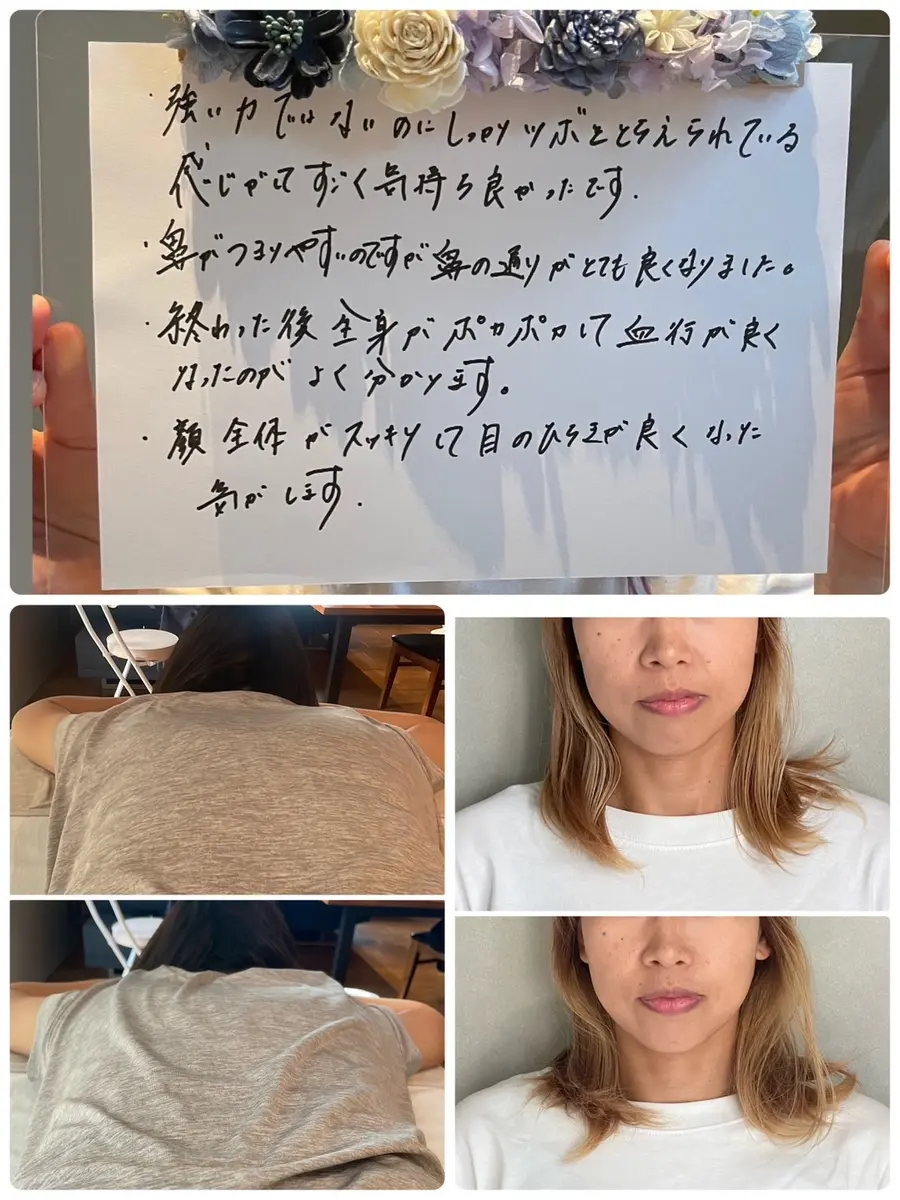 ・強い力ではないのにしっかりツボをとらえられている
感じがしてすごく気持ち良かったです.
・鼻がつまりやすいのですが鼻の通りがとても良くなりました。
・終わった後全身がポカポカして血行が良く
なったのがよく分かります。
・顔全体がスッキリして目のひらきが良くなった
気がします.